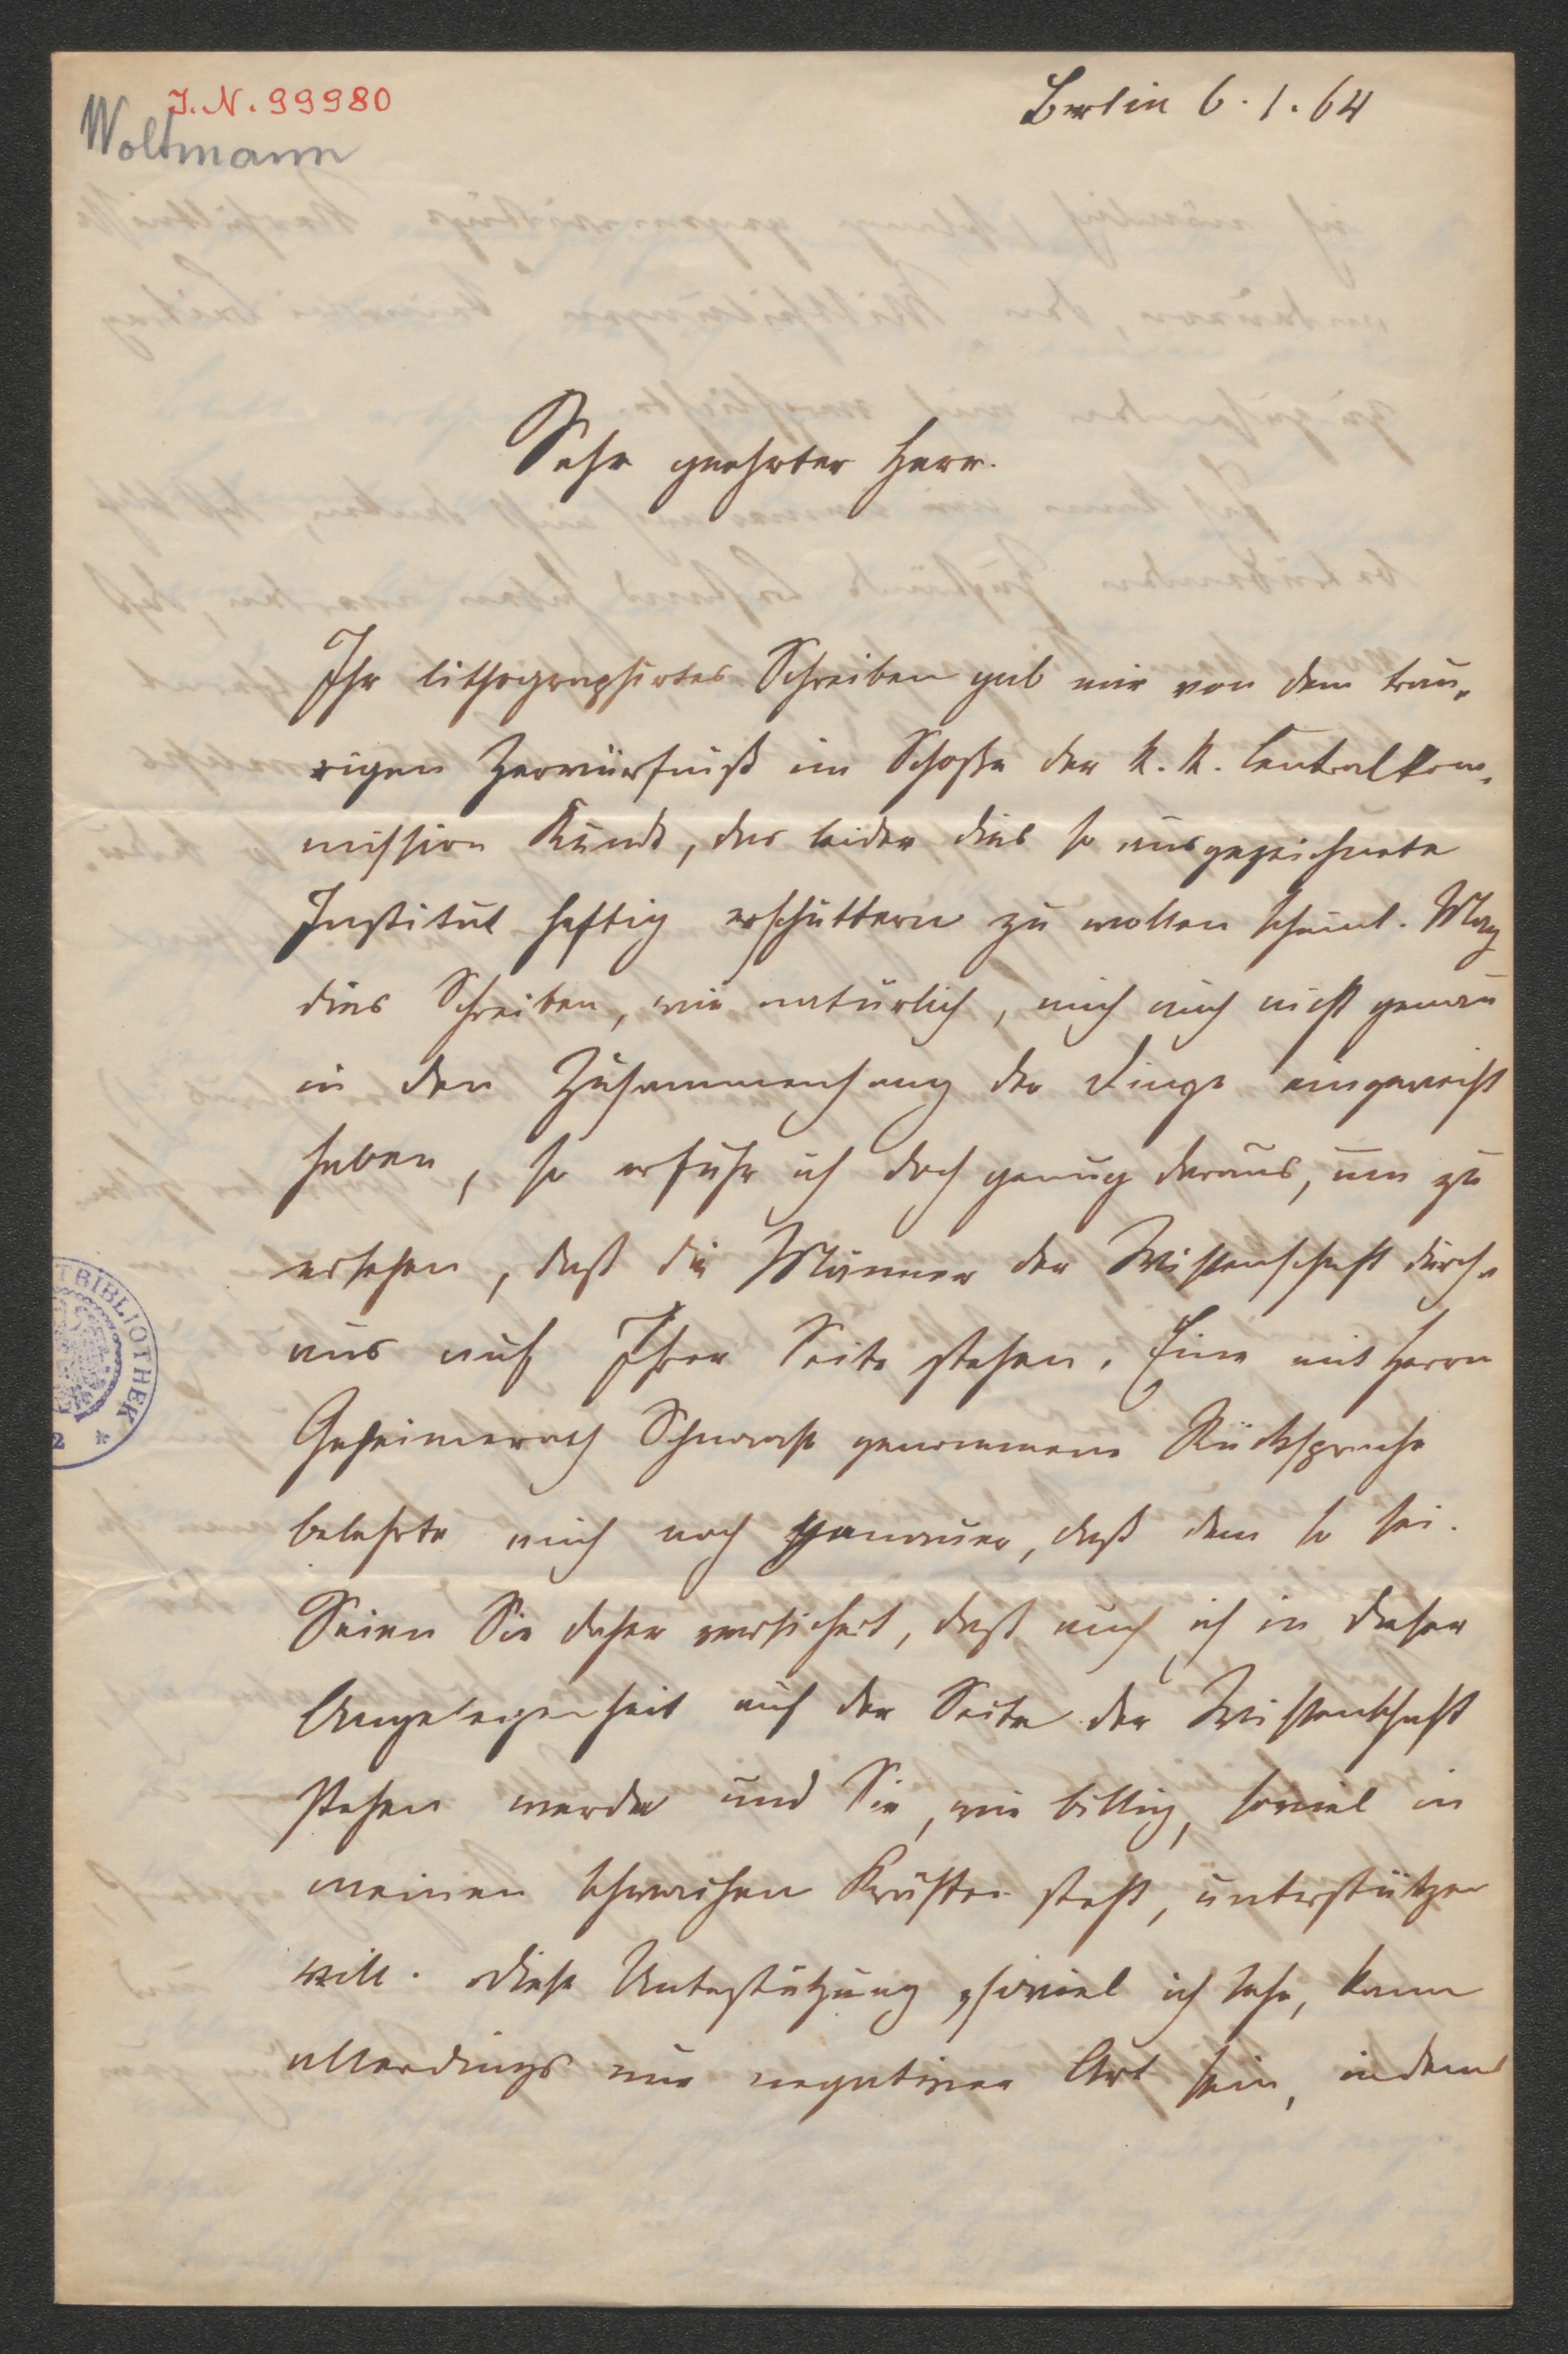 J. N. 99980
Woltmann
Berlin 6. 1. 64
Sehr geehrter Herr.
Ihr lithographirtes Schreiben gab mir von dem trau-
rigen Zerwürfniß im Schoße der k. k. Centralkom-
mission Kunde, das leider dies so ausgezeichnete
Institut heftig erschüttern zu wollen scheint. Mag
dies Schreiben, wie natürlich, mich auch nicht genau
in den Zusammenhang der Dinge eingeweiht
haben, so erfuhr ich doch genug daraus, um zu
ersehen, daß die Männer der Wissenschaft durch-
aus auf Ihrer Seite stehen. Eine mit Herrn
Geheimerath Schnaase genommene Rücksprache
belehrte mich noch genauer, daß dem so sei.
Seien Sie daher versichert, daß auch ich in dieser
Angelegenheit auf der Seite der Wissenschaft
stehen werde und Sie, wie billig, soviel in
meinen schwachen Kräften steht, unterstützen
will. Diese Unterstützung, soviel ich sehe, kann
allerdings nur negativer Art sein, indem
TBIBLIOTHEK